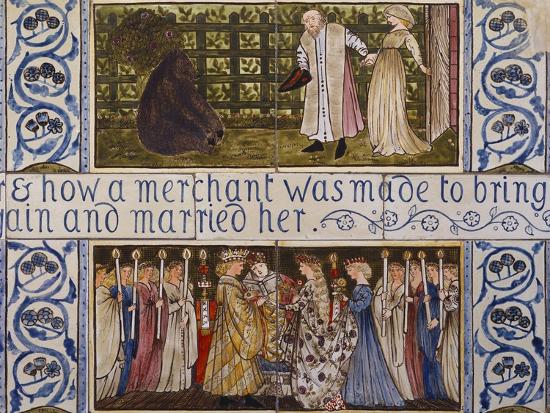 r & how a merchant was made to bring
gain and married her.